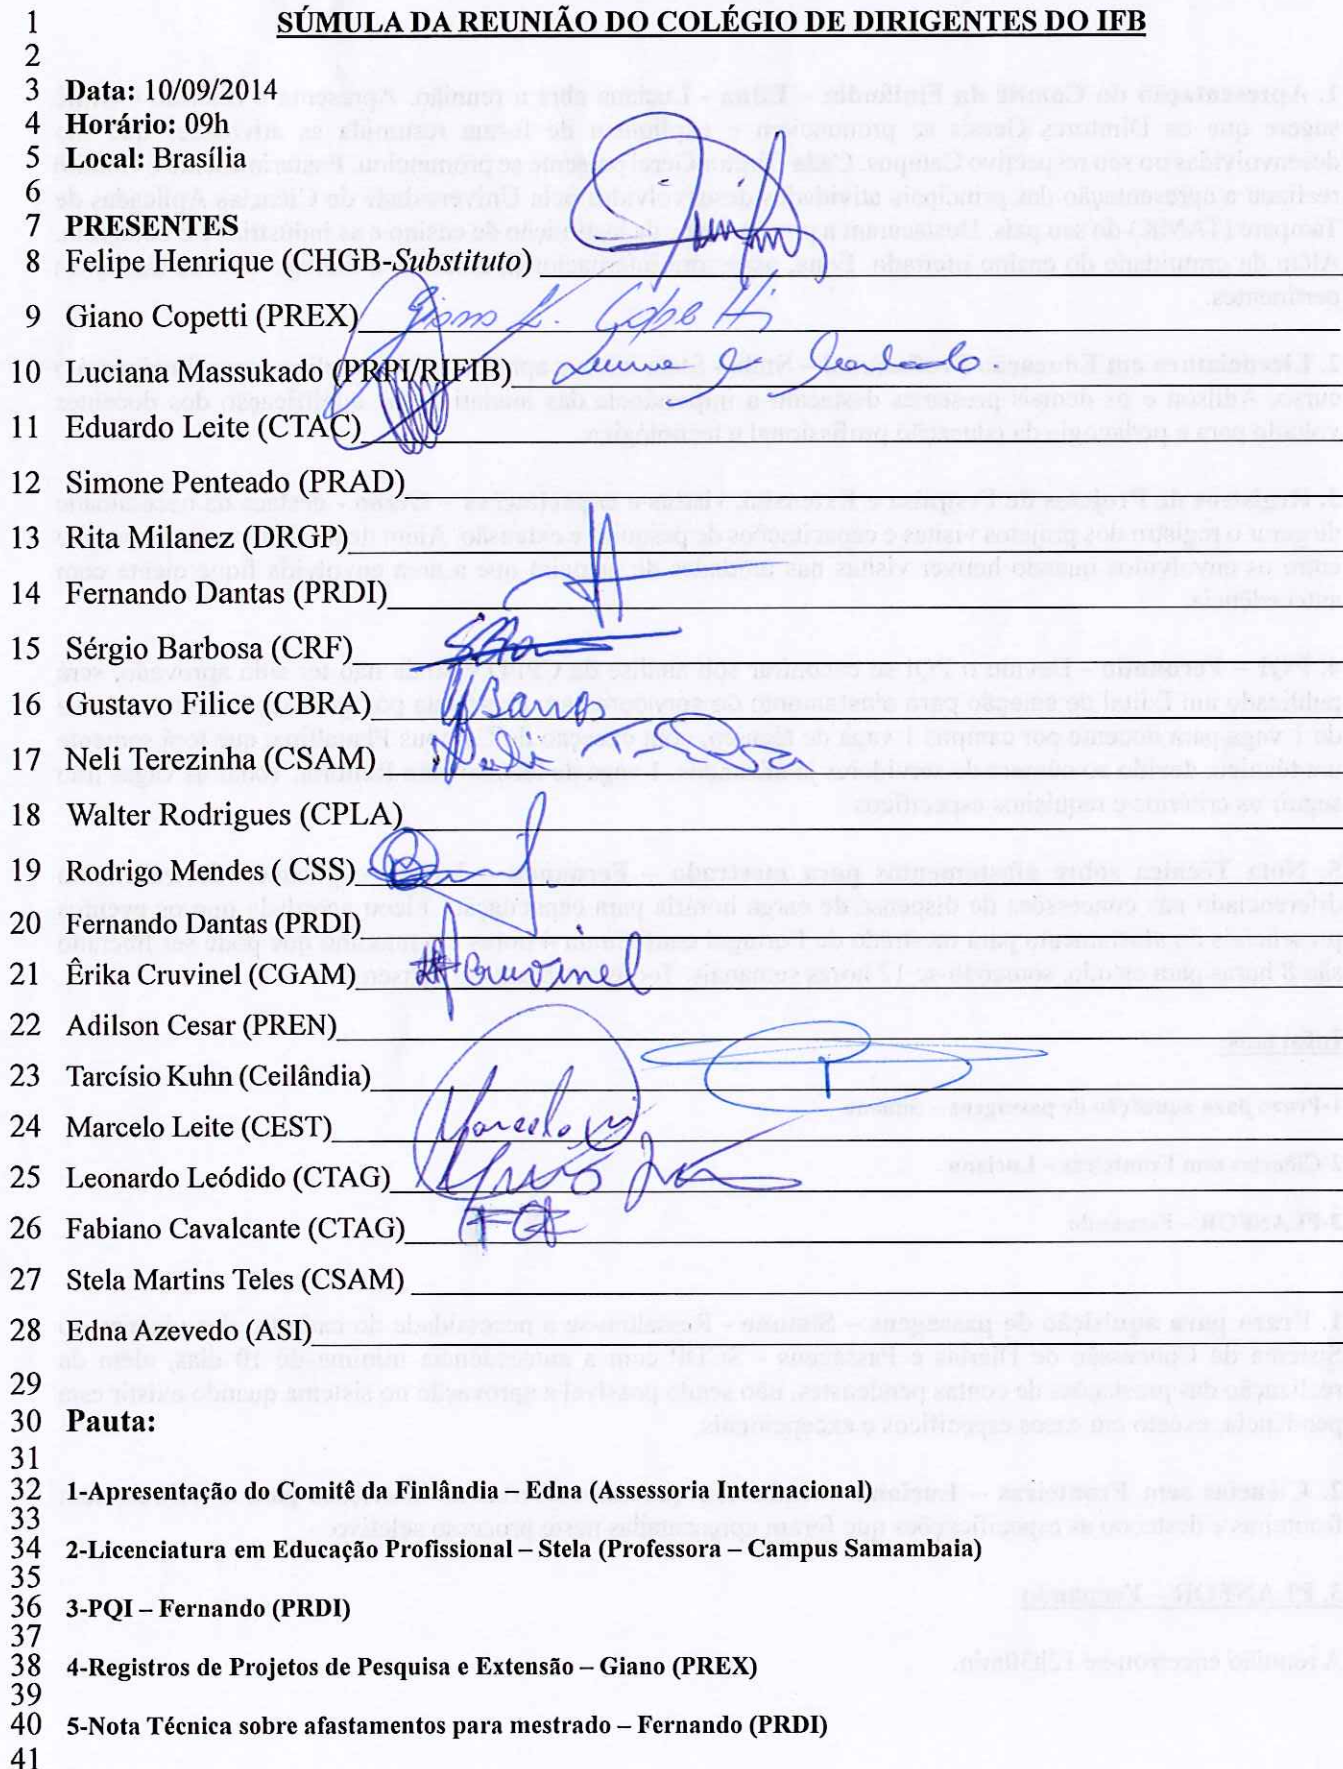 1 SÚMULA DA REUNIÃO DO COLÉGIO DE DIRIGENTES DO IFB
2
3 Data: 10/09/2014
4 Horário: 09h
5 Local: Brasília
6
7 PRESENTES
8 Felipe Henrique (CHGB-Substituto)
9 Giano Copetti (PREX) Giano Copetti
10 Luciana Massukado (PRPI/RIFIB)
11 Eduardo Leite (CTAC)
12 Simone Penteado (PRAD)
13 Rita Milanez (DRGP)
14 Fernando Dantas (PRDI)
15 Sérgio Barbosa (CRF)
16 Gustavo Filice (CBRA)
17 Neli Terezinha (CSAM) Neli
18 Walter Rodrigues (CPLA)
19 Rodrigo Mendes ( CSS)
20 Fernando Dantas (PRDI)
21 Êrika Cruvinel (CGAM) Cruvinel
22 Adilson Cesar (PREN)
23 Tarcísio Kuhn (Ceilândia)
24 Marcelo Leite (CEST) Marcelo
25 Leonardo Leódido (CTAG)
26 Fabiano Cavalcante (CTAG)
27 Stela Martins Teles (CSAM)
28 Edna Azevedo (ASI)
29
30 Pauta:
31
32 1-Apresentação do Comitê da Finlândia – Edna (Assessoria Internacional)
33
34 2-Licenciatura em Educação Profissional – Stela (Professora – Campus Samambaia)
35
36 3-PQI – Fernando (PRDI)
37
38 4-Registros de Projetos de Pesquisa e Extensão – Giano (PREX)
39
40 5-Nota Técnica sobre afastamentos para mestrado – Fernando (PRDI)
41